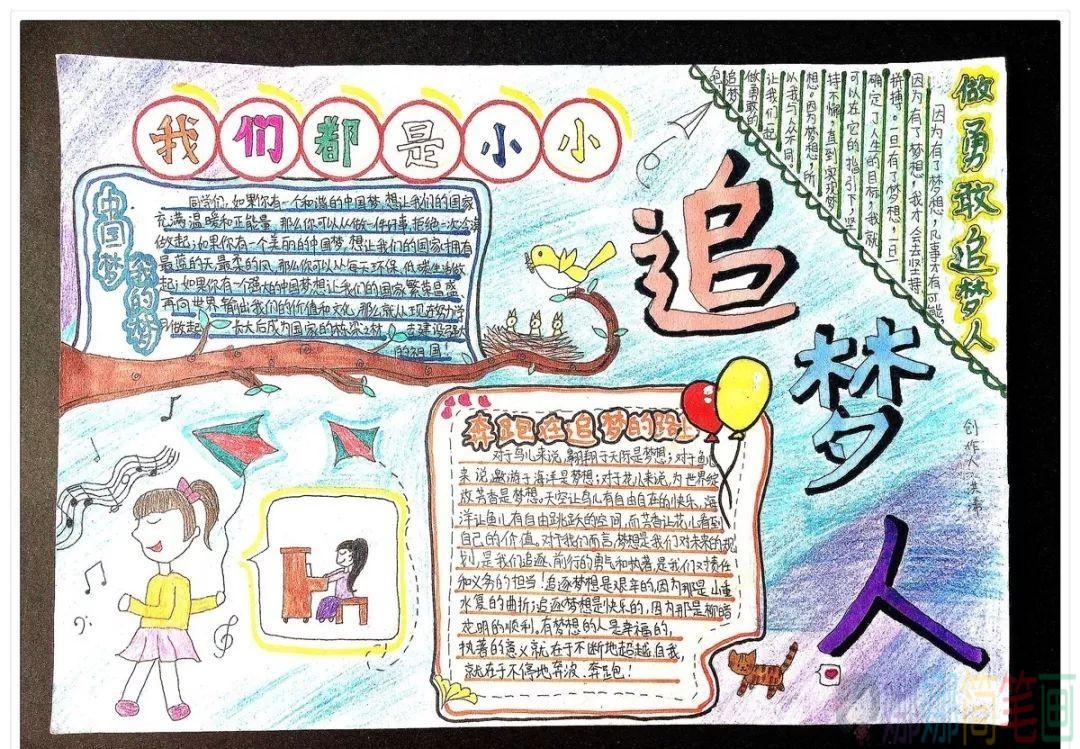 我们都是小小
追
梦
人
中国梦
我的梦
同学们,如果你有一个和谐的中国梦,想让我们的国家
充满温暖和正能量,那么你可以从做一件好事,拒绝一次
做起;如果你有一个美丽的中国梦,想让我们的国家拥有
最蓝的天最柔的风,那么你可以从每天环保,低碳生活做
起;如果你有一个强大的中国梦想让我们的国家繁荣昌盛
再向世界输出我们的价值和文化,那么就从现在努力学
习做起,长大后成为国家的栋梁之材,去建设强大
的祖国!
做勇敢追梦人
因为有了梦想,凡事才有可能。
因为有了梦想,我才会去坚持、
拼搏。一旦有了梦想,一旦
确定了人生的目标,我就
可以在它的指引下,坚
持不懈,直到实现梦
想。因为梦想,所
以我与众不同。
让我们一起
做勇敢的
追梦
创作人:
奔跑在追梦的路上
对于鸟儿来说,翱翔于天际是梦想;对于鱼儿
来说,遨游于海洋是梦想;对于花儿来说,为世界绽
放芳香是梦想。天空让鸟儿有自由自在的快乐,海
洋让鱼儿有自由跳跃的空间,而芳香让花儿看到
自己的价值。对于我们而言,梦想是我们对未来的规
划,是我们追逐、前行的勇气和执著,是我们对责任
和义务的担当!追逐梦想是艰辛的,因为那是山重
水复的曲折;追逐梦想是快乐的,因为那是柳暗
花明的顺利,有梦想的人是幸福的,
执著的意义就在于不断地超越自我,
就在于不停地奔波、奔跑!
娜娜简笔画